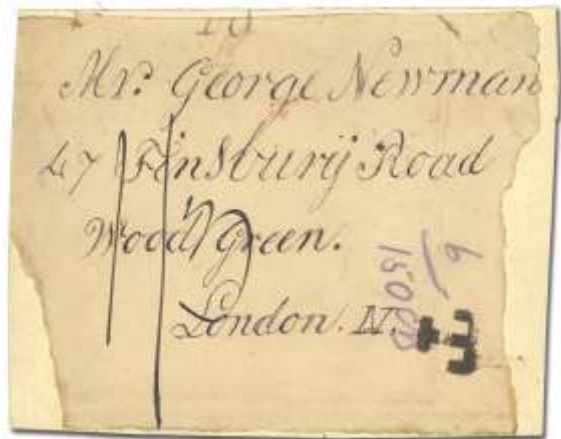 Mr. George Newman
47 Finsbury Road
Wood Green.
London. N.